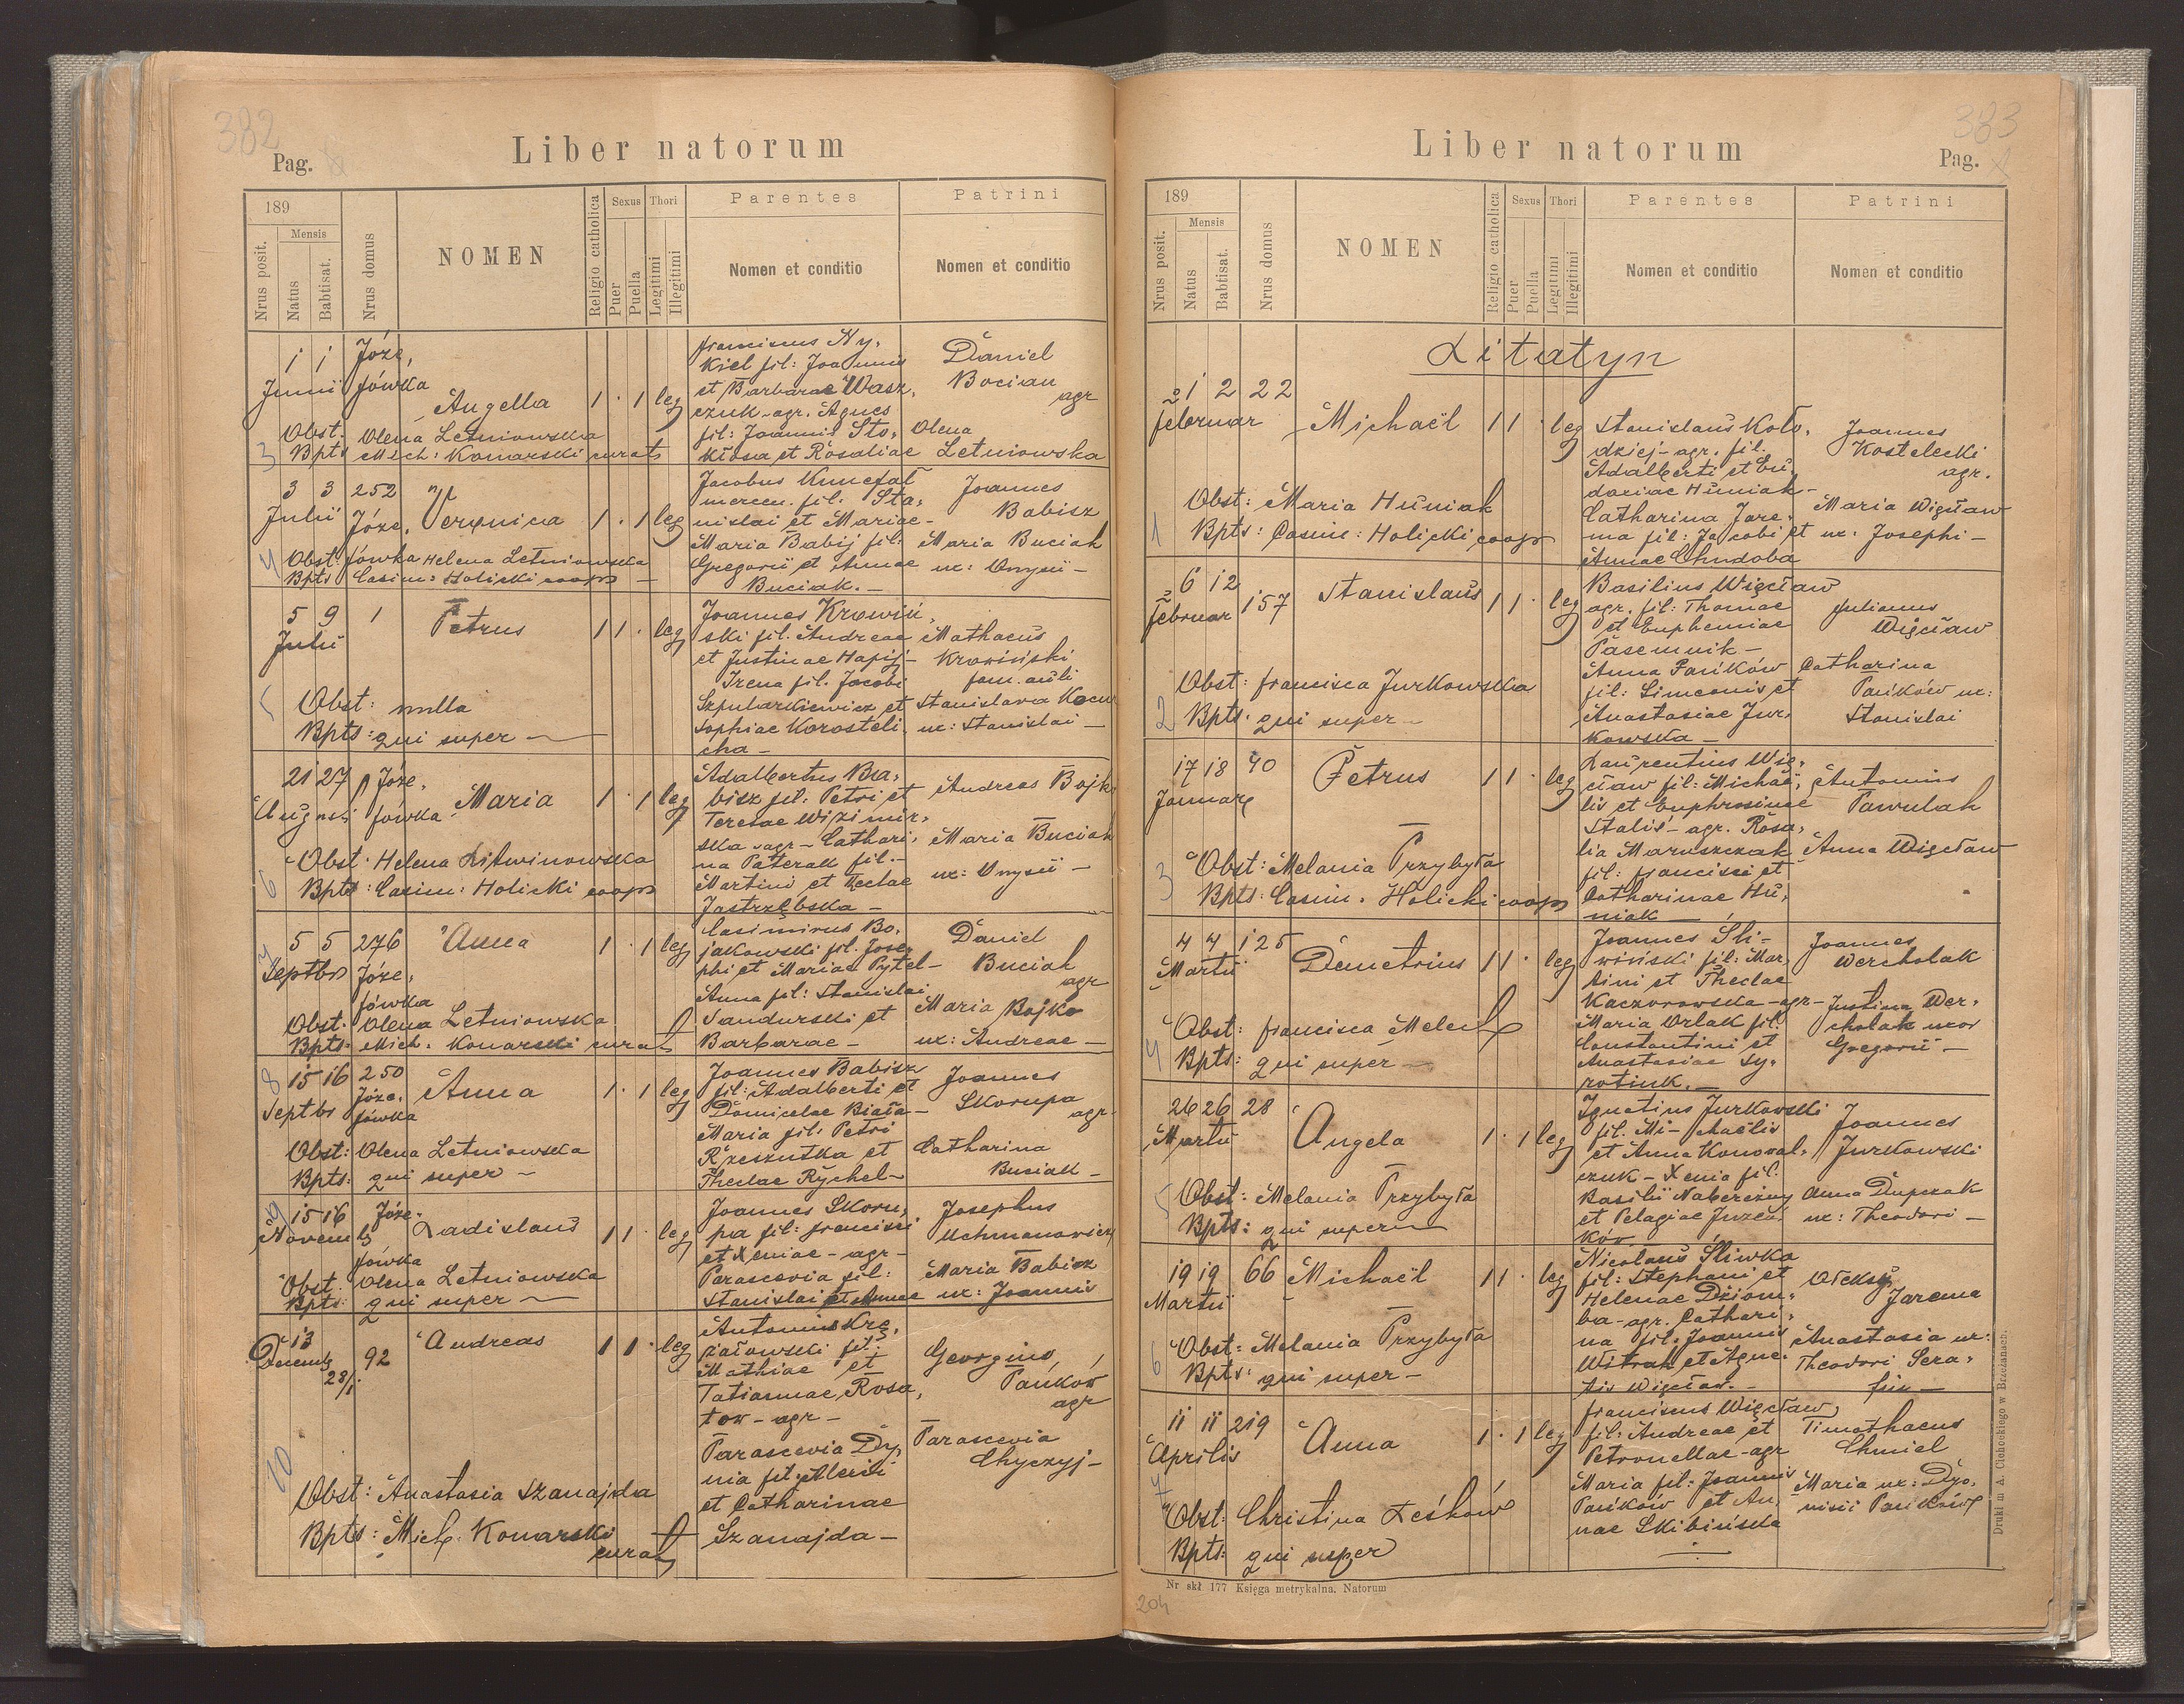 382
Pag.
Liber natorum
189
Mensis
Nrus posit.
Natus
Babtisat.
Nrus domus
NOMEN
Religio catholica
Sexus
Puer
Puella
Thori
Legitimi
Illegitimi
Parentes
Nomen et conditio
Patrini
Nomen et conditio
1 1 Józe,
Junii fówka
Angella 1 . 1 leg
Franciscus Ny,
kiel fil: Joannis
et Barbarae Wasz,
czuk - agr. Agnes
fil: Joannis Sto,
kłosa et Rosaliae
Daniel
Bocian
agr
Olena
Letniowska
Obst: Olena Letniowska
3 Bpts Mich: Konarski curat
3 3 252
Julii Józe, Veronica 1 . 1 leg
Jacobus Kunefał
mercen. fil. Sta,
nislai et Mariae -
Maria Babij fil:
Gregorii et Annae
Buciak. -
Joannes
Babisz
Maria Buciak
ux: Onysii -
4 Obst: fówka Helena Letniowska
Bpts Casim: Holicki coop -
5 9 1 Petrus 1 1 . leg
Julii
Joannes Krowiń,
ski fil. Andreae
et Justinae Hapij -
Irena fil. Jacobi
Szpularkiewicz et
Sophiae Korosteli,
cha -
Mathaeus
Krowiński
fam. auli
Stanislava Kocur
ux: Stanislai -
5 Obst: nulla
Bpts: qui super
21 27 Józe,
Augusti fówka Maria 1 . 1 leg
Adalbertus Ba,
bisz fil: Petri et
Teresae Wizimir,
ska - agr - Cathari,
na Paterak fil. -
Martini et Teclae
Jastrzębska -
Andreas Bojko
Maria Buciak
ux: Onysii -
Obst. Helena Litwinowska
6 Bpts: Casim: Holicki coop
7 5 5 276 Anna 1 . 1 leg
Septbr Józe,
fówka
Casimirus Bo,
jakowski fil. Jose,
phi et Mariae Pytel -
Anna fil: Stanislai
Sandurski et
Barbarae -
Daniel
Buciak
agr
Maria Bojko
ux: Andreae -
Obst. Olena Letniowska
Bpts: Mich. Konarski curat
8 15 16 250 Anna 1 . 1 leg
Septbr Józe,
fówka
Joannes Babisz
fil: Adalberti et
Domicelae Biała -
Maria fil: Petri
Rzeszutka et
Theclae Rychel -
Joannes
Skorupa
agr.
Catharina
Buciak -
Obst: Olena Letniowska
Bpts: qui super -
9 15 16 Józe. Ladislaus 1 1 . leg
Novemb fówka
Joannes Skoru,
pa fil: Francisci
et Xeniae - agr -
Parascevia fil:
Stanislai et Annae
Josephus
Uchmanowicz
Maria Babisz
ux: Joannis
Obst. Olena Letniowska
Bpts: qui super
13
Decemb 92 Andreas 1 1 . leg
28/1
Antonius Krę,
żałowski fil:
Mathiae et
Tatiannae Rosa,
tow - agr -
Parascevia Dy,
nia fil: Alexii
et Catharinae
Szanajda -
Georgius
Pańków
agr
Parascevia
Chyczyj -
10
Obst: Anastasia Szanajda
Bpts: Mich. Konarski
curat
383
Pag.
Liber natorum
189
Mensis
Nrus posit.
Natus
Babtisat.
Nrus domus
NOMEN
Religio catholica
Sexus
Puer
Puella
Thori
Legitimi
Illegitimi
Parentes
Nomen et conditio
Patrini
Nomen et conditio
Litatyn
1 2 22
Februar Michaël 1 1 . leg
Stanislaus Koło,
dziej - agr. fil.
Adalberti et Eu,
doxiae Huniak -
Catharina Jare,
ma fil: Jacobi et
Annae Chudoba
Joannes
Kostelecki
agr.
Maria Więcław
ux: Josephi -
Obst: Maria Huniak
1 Bpts: Casim: Holicki coop
6 12
Februar 157 Stanislaus 1 1 . leg
Basilius Więcław
agr. fil: Thomae
et Euphemiae
Pasemnik -
Anna Pańków
fil: Simeonis et
Anastasiae Jur,
kowska -
Julianus
Więcław
Catharina
Pańków ux:
Stanislai
Obst: Francisca Jurkowska
2 Bpts: qui super -
17 18 40 Petrus 1 1 . leg
Januar
Laurentius Wię,
cław fil: Michaë,
lis et Euphrosinae
Stalis - agr. Rosa,
lia Maruszczak
fil: Francisci et
Catharinae Hu,
niak
Antonius
Pawulak
Anna Więcław
3 Obst: Melania Przybyła
Bpts: Casim. Holicki coop
4 4 125 Demetrius 1 1 . leg
Martii
Joannes Śli -
wiński fil: Mar,
tini et Theclae
Kaczorowska - agr -
Maria Orlak fil.
Constantini et
Anastasiae Sy,
rotiuk. -
Joannes
Wercholak
Justina Wer,
cholak uxor
Gregorii -
Obst: Francisca Melech
4 Bpts: qui super -
26 26 28 Angela 1 . 1 leg
Martii
Ignatius Jurkowski
fil. Michaëlis
et Anna Konoval,
czuk - Xenia fil.
Basilii Nabereżny
et Pelagiae Juzeń,
ków
Joannes
Jurkowski
Anna Dupczak
ux: Theodori -
5 Obst: Melania Przybyła
Bpts: qui super
19 19 66 Michaël 1 1 . leg
Martii
Nicolaus Śliwka
fil: Stephani et
Helenae Dziom,
ba - agr. Cathari,
na fil: Joannis
Witrak et Agne,
tis Więcław. -
Ołeksy
Jarema
Anastasia ux:
Theodori Sera,
fin -
6 Obst: Melania Przybyła
Bpts: qui super -
11 11 219 Anna 1 . 1 leg
Aprilis
Franciscus Więcław,
fil: Andreae et
Petronellae - agr
Maria fil: Joannis
Pańków et An,
nae Skibińska
Timothaeus
Chmiel
Maria ux: Dyo,
nisii Pańków
7 Obst: Christina Leśków
Bpts: qui super
Nr skł 177 Księga metrykalna. Natorum
Druki m A. Cichockiego w Brzeżanach.
204